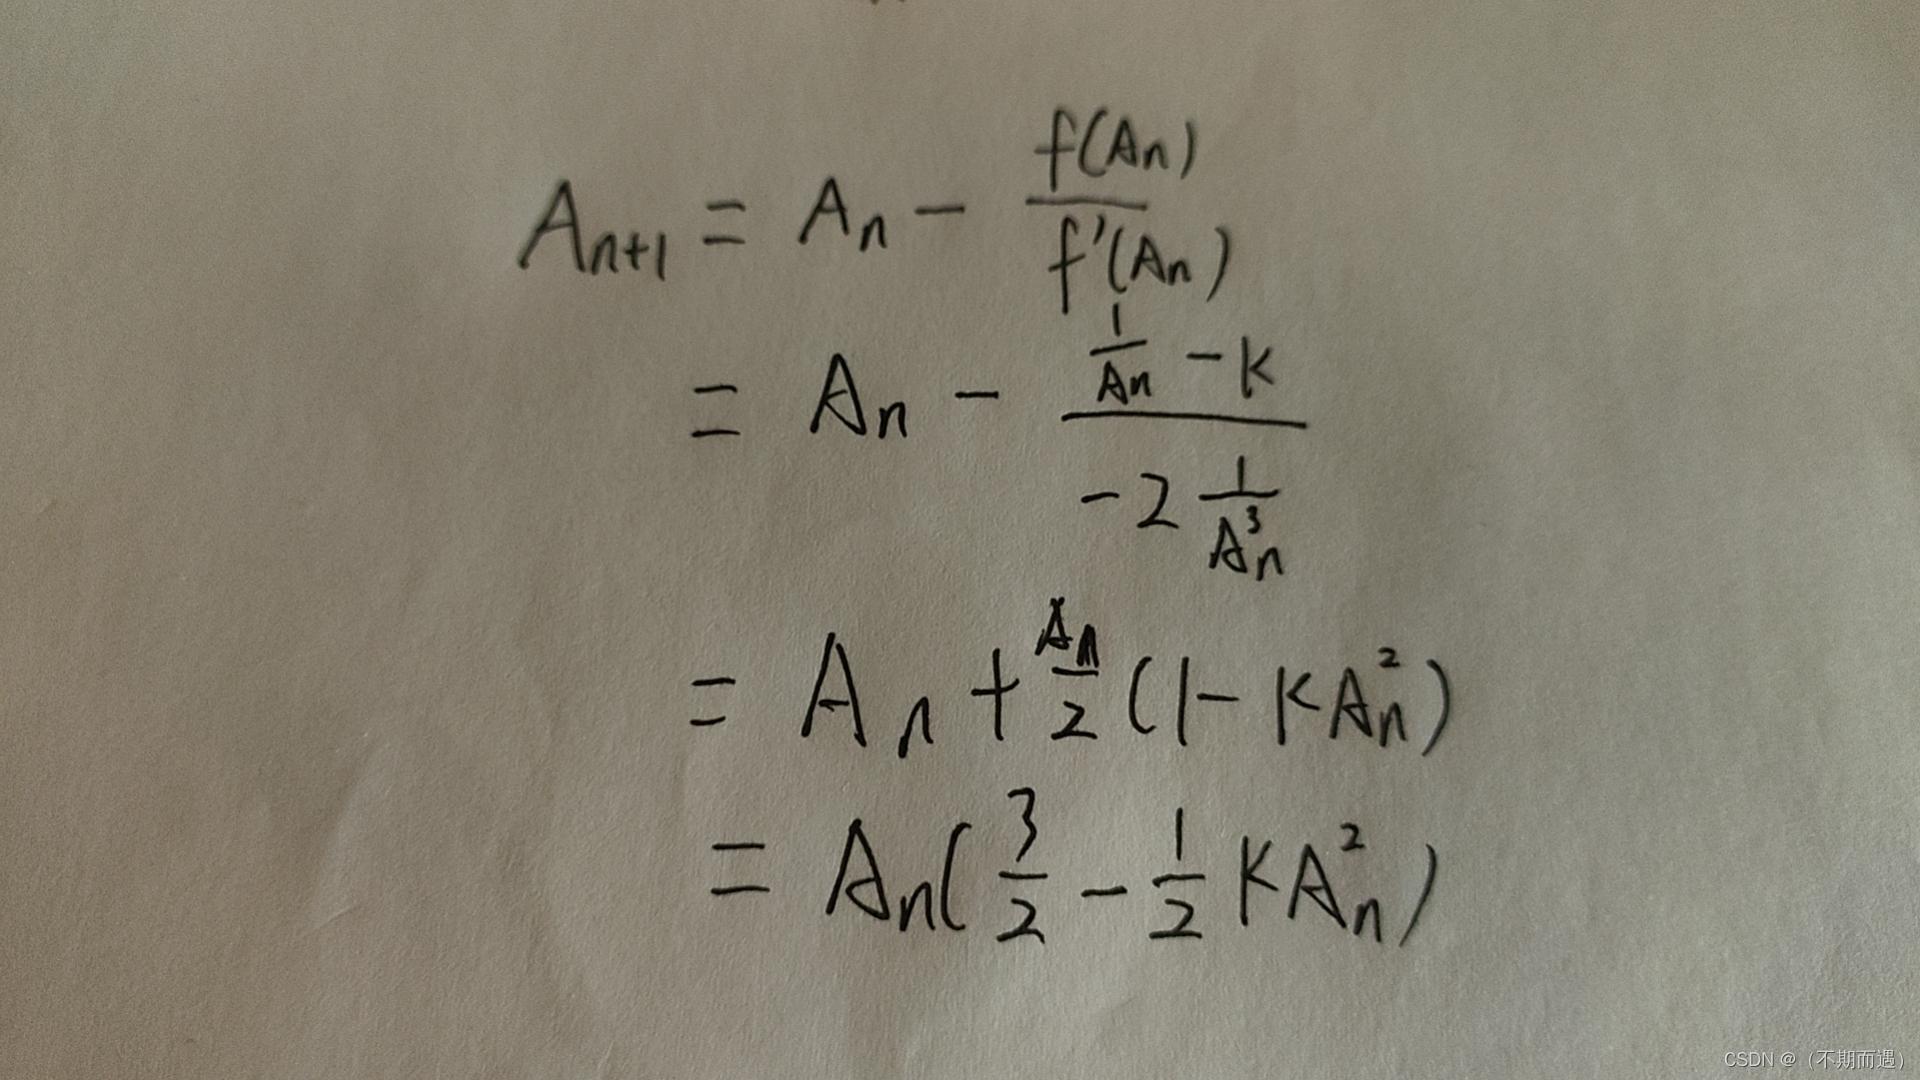 A_{n+1} = A_n - \frac{f(A_n)}{f'(A_n)}
= A_n - \frac{\frac{1}{A_n} - K}{-2 \frac{1}{A_n^3}}
= A_n + \frac{A_n}{2} (1 - K A_n^2)
= A_n ( \frac{3}{2} - \frac{1}{2} K A_n^2 )
CSDN @（不期而遇）